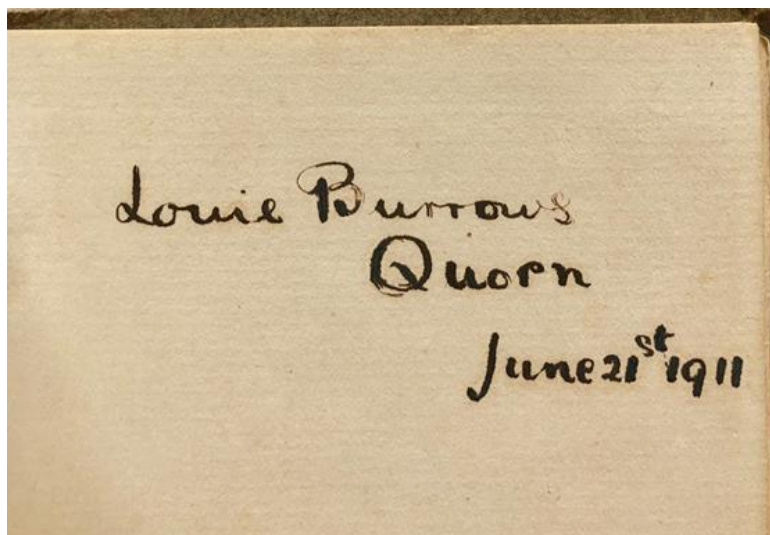 Louie Burrows
Quorn
June 21st 1911